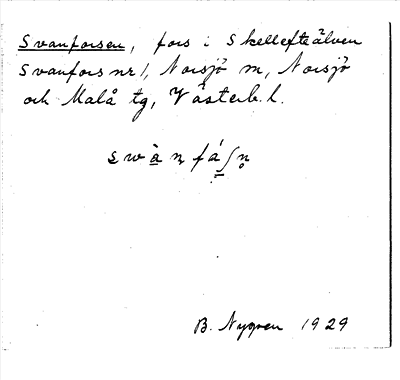 Svanforsen, fors i Skellefteälven
Svanfors nr 1, Norsjö sn, Norsjö
och Malå tg, Västerb. l.
B. Nygren 1929